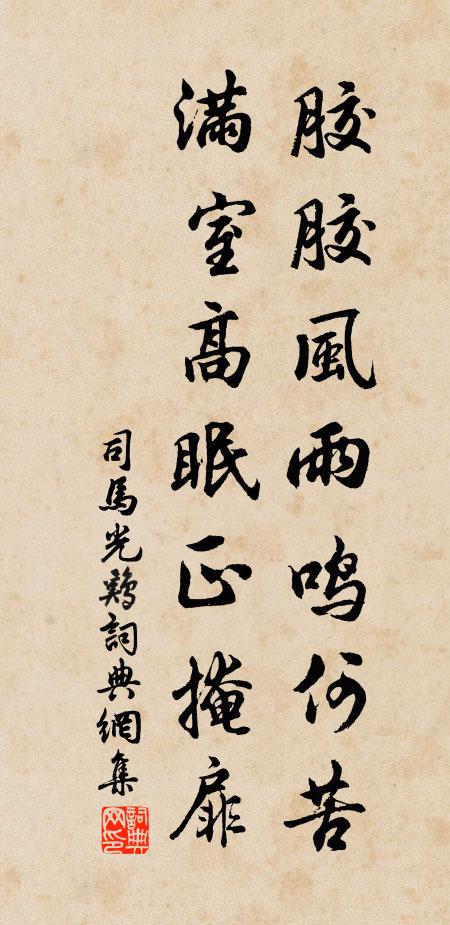 胶胶風雨鳴何苦
滿室高眠正掩扉
司馬光鷄詞典網集
詞典网印